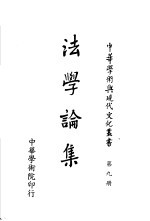 中華學術與現代文化叢書
第九冊
法學論集
中華學術院印行